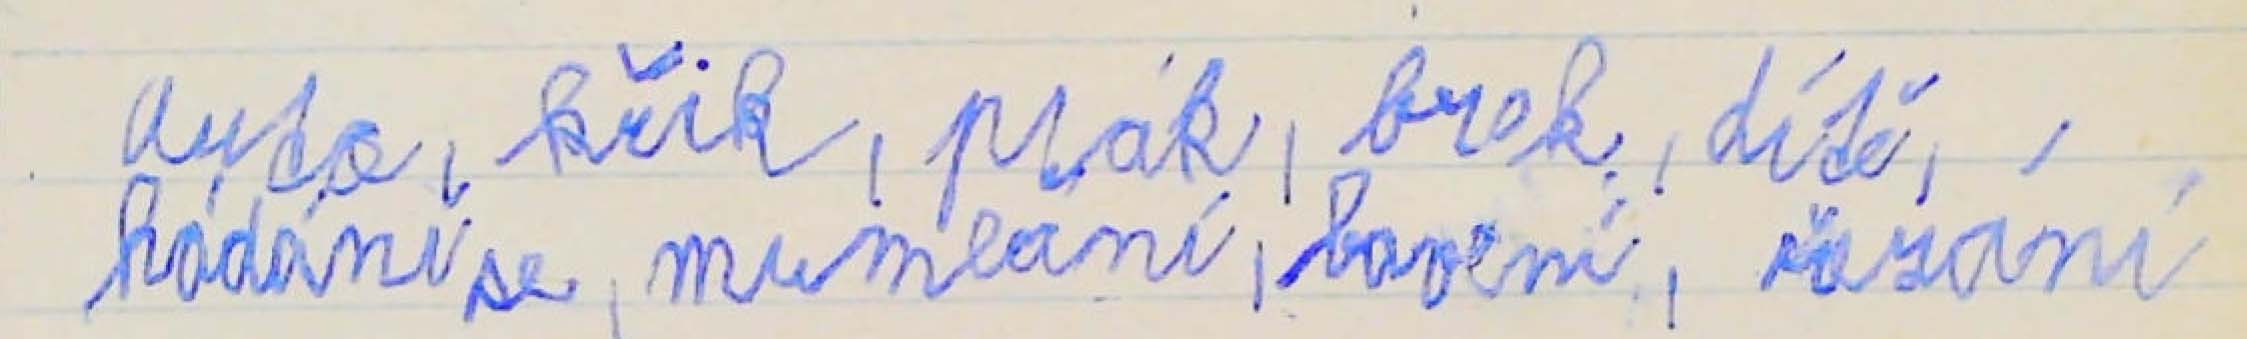 auto, křik, pták, brok, dítě,
hádání se, mumlání, bavení, řezání